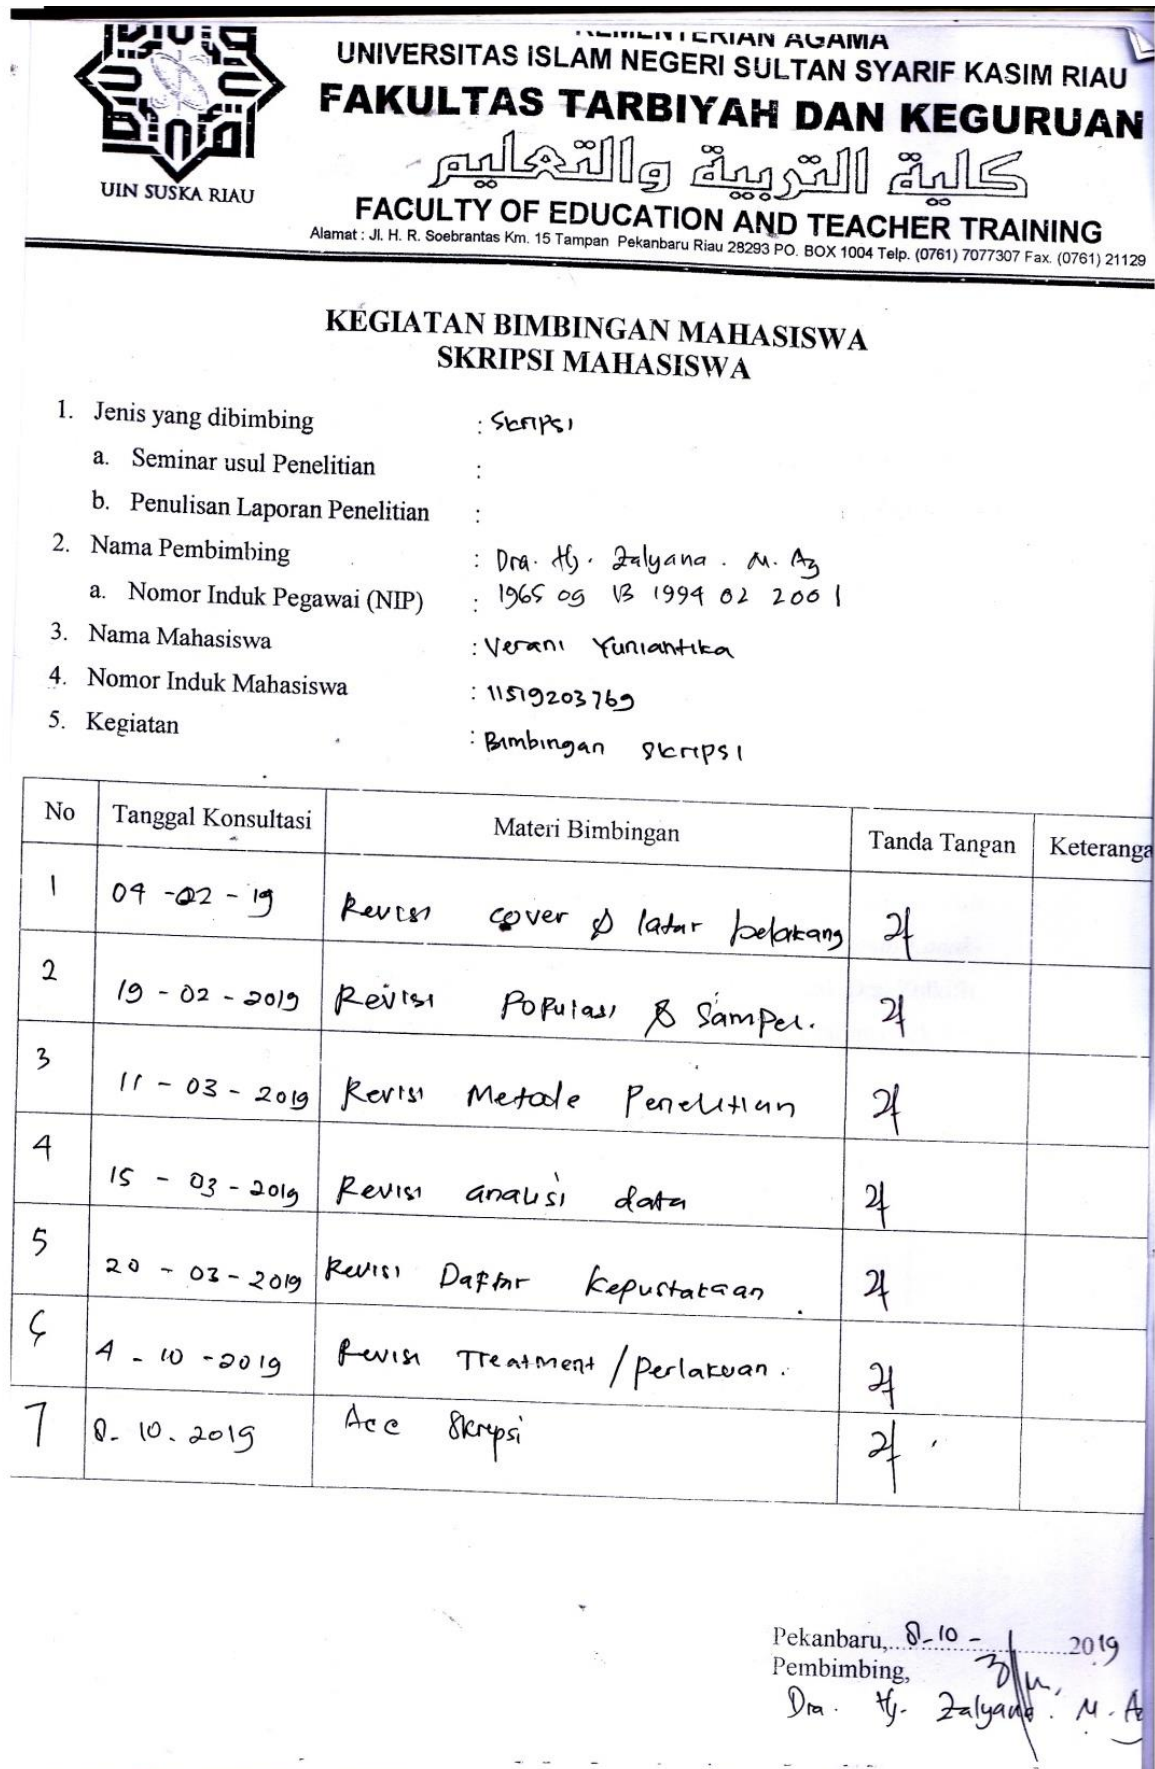 KEMENTERIAN AGAMA
UNIVERSITAS ISLAM NEGERI SULTAN SYARIF KASIM RIAU
FAKULTAS TARBIYAH DAN KEGURUAN
كلية التربية والتعليم
UIN SUSKA RIAU
FACULTY OF EDUCATION AND TEACHER TRAINING
Alamat : Jl. H. R. Soebrantas Km. 15 Tampan Pekanbaru Riau 28293 PO. BOX 1004 Telp. (0761) 7077307 Fax. (0761) 21129
KEGIATAN BIMBINGAN MAHASISWA
SKRIPSI MAHASISWA
1. Jenis yang dibimbing : Skripsi
a. Seminar usul Penelitian :
b. Penulisan Laporan Penelitian :
2. Nama Pembimbing : Dra. Hj. Zalyana. M. Ag
a. Nomor Induk Pegawai (NIP) : 1965 09 13 1994 02 2001
3. Nama Mahasiswa : Verani Yuniantika
4. Nomor Induk Mahasiswa : 11519203769
5. Kegiatan : Bimbingan Skripsi
No Tanggal Konsultasi Materi Bimbingan Tanda Tangan Keteranga
1 04 - 02 - 19 Revisi cover & latar belakang
2 19 - 02 - 2019 Revisi Populasi & Sampel.
3 11 - 03 - 2019 Revisi Metode Penelitian
4 15 - 03 - 2019 Revisi analisi data
5 20 - 03 - 2019 Revisi Daftar Kepustakaan.
6 4 - 10 - 2019 Revisi Treatment / Perlakuan.
7 8. 10. 2019 Acc Skripsi
Pekanbaru, 8-10 - 2019
Pembimbing,
Dra. Hj. Zalyana. M. Ag